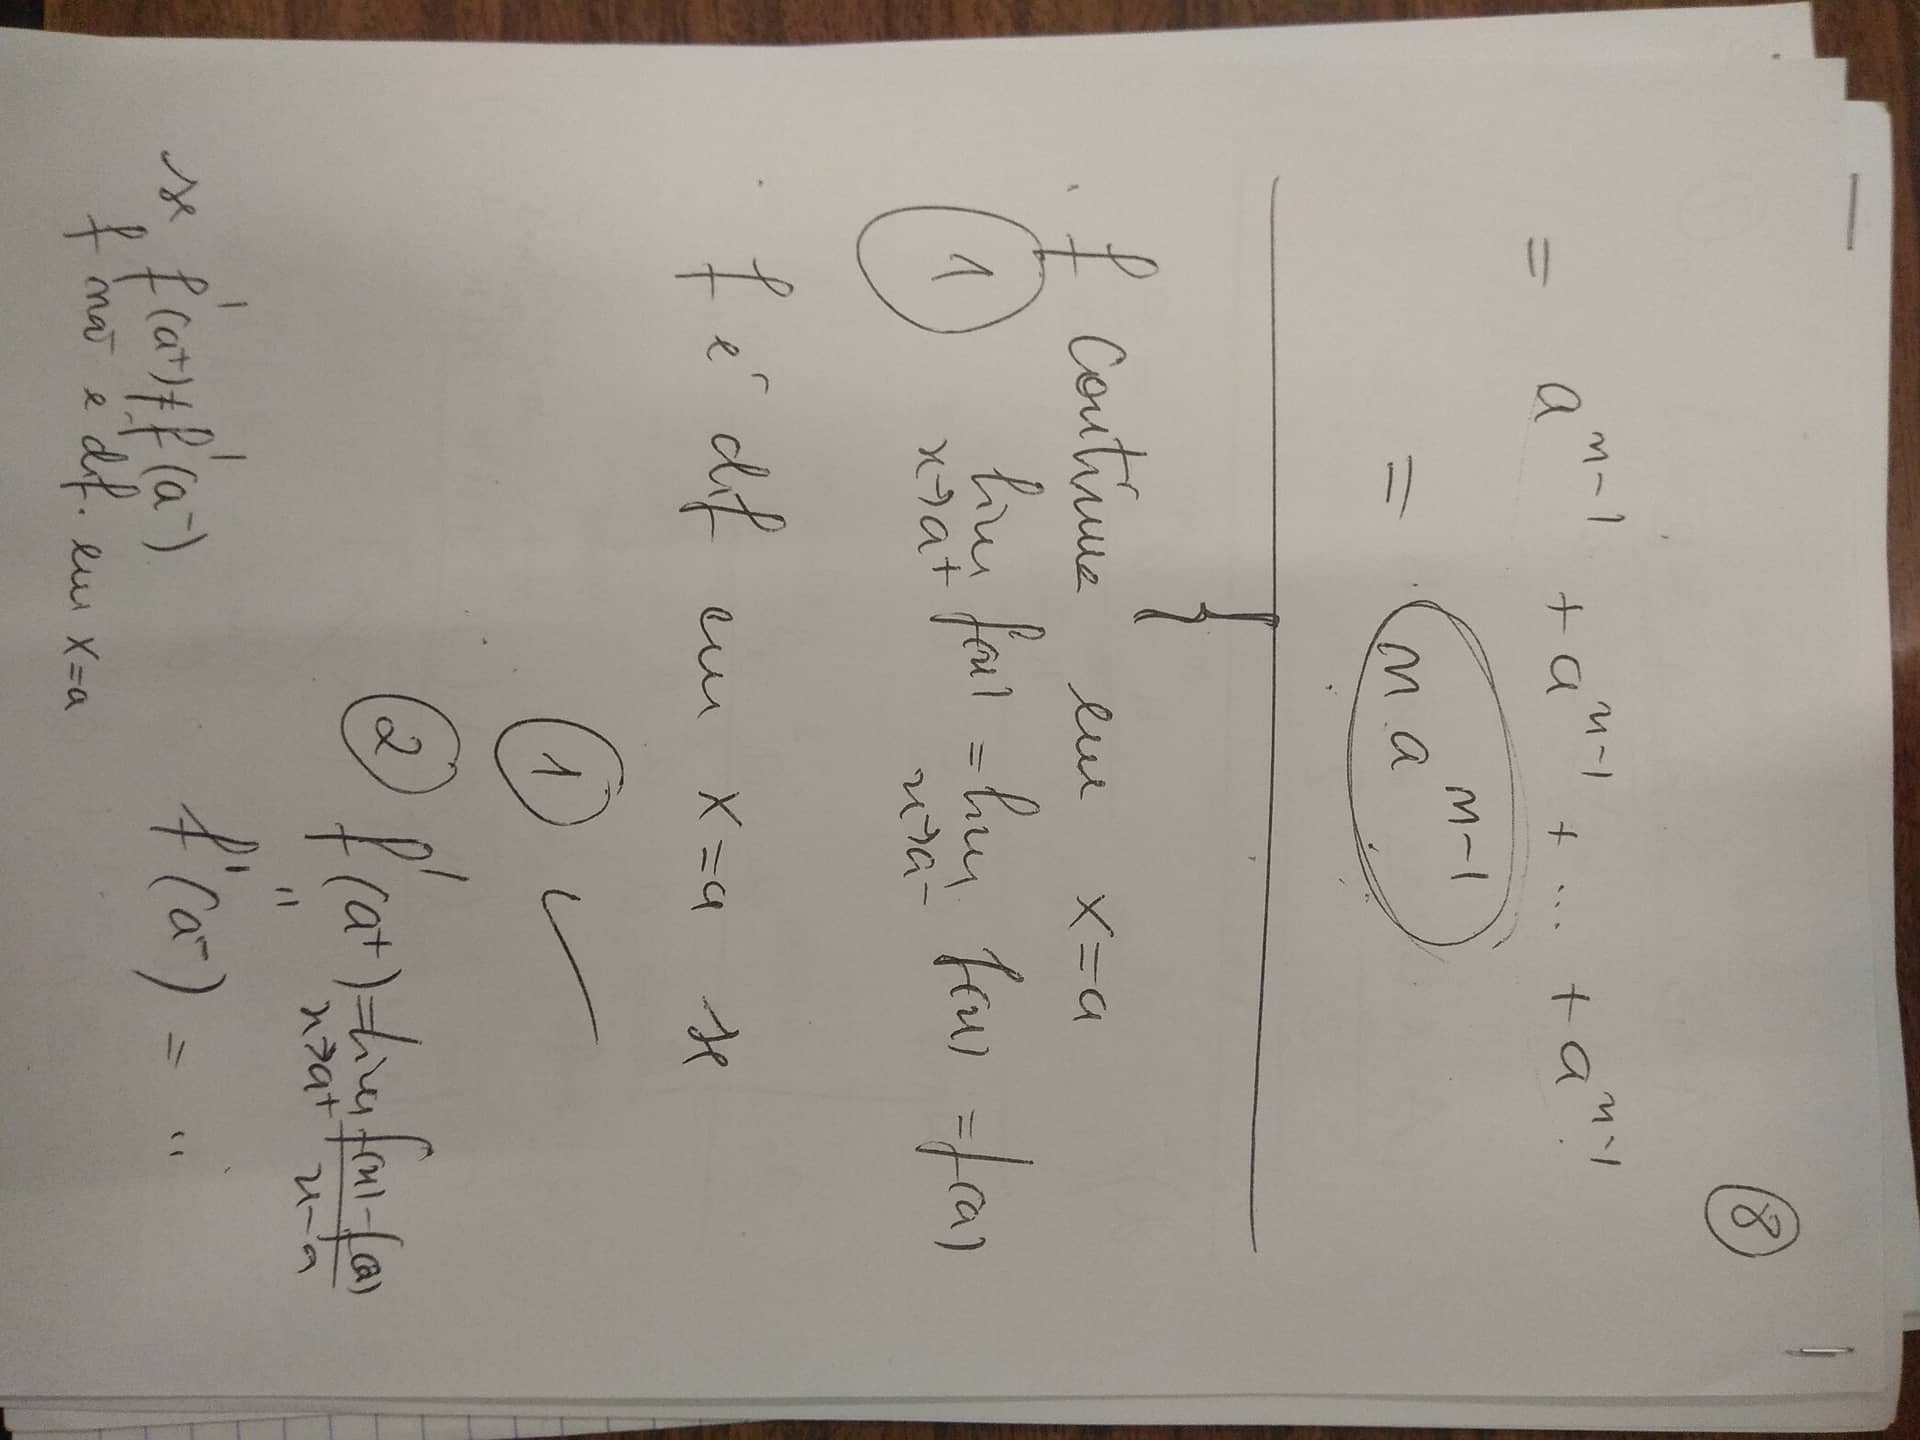 8
= a^{n-1} + a^{n-1} + ... + a^{n-1}
= n a^{n-1}
f continua em x=a
1 lim x→a+ f(x) = lim x→a- f(x) = f(a)
f é dif em x=a se
1 ✓
2 f'(a+) = lim x→a+ \frac{f(x)-f(a)}{x-a}
"
f'(a-) = "
se f'(a+) ≠ f'(a-)
f não é dif. em x=a